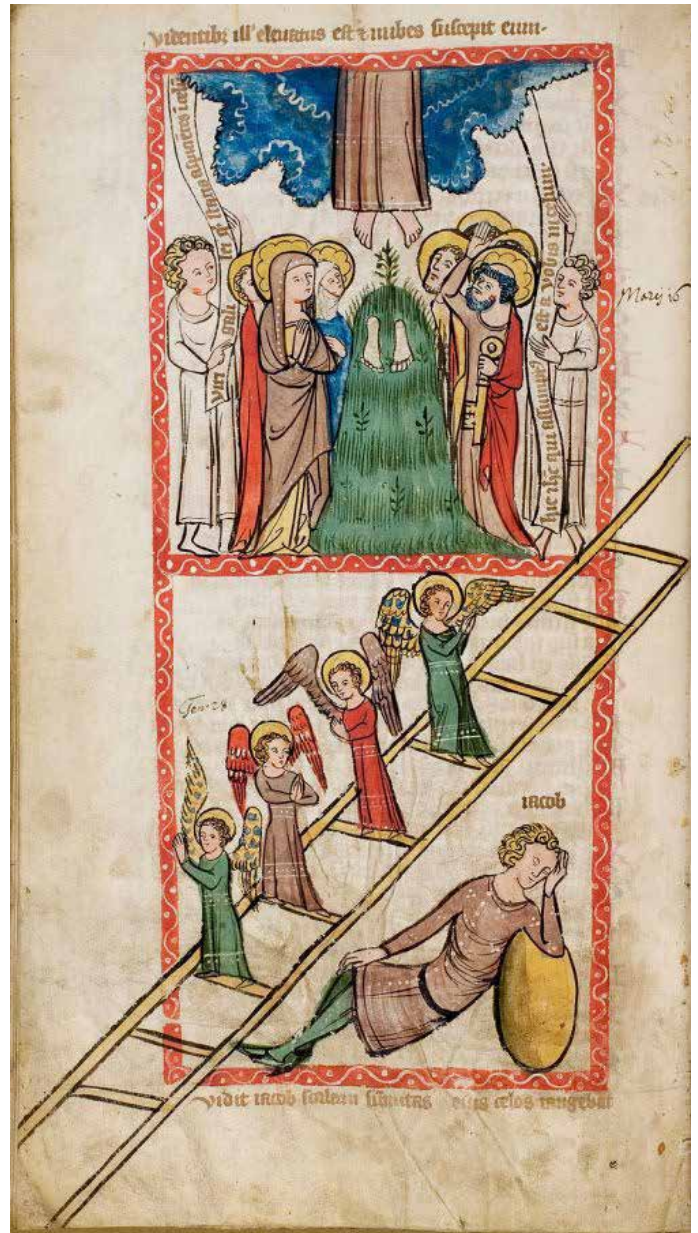 videntibz ill' eleuatus est & nubes suscepit eum·
viri galilei
assumptus
hic ihc qui assumptus est a vobis in celum·
Marci 16
Gen· 28
iacob
vidit iacob scalam sumitas eius celos tangebat